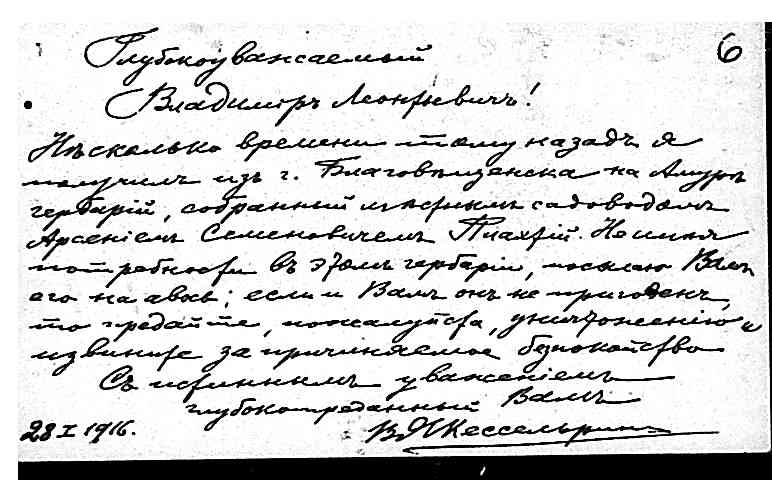 6
Глубокоуважаемый
Владимиръ Леонтьевичъ!
Нѣсколько времени тому назадъ я
получилъ изъ г. Благовѣщенска на Амурѣ
гербарій, собранный мѣстнымъ садоводомъ
Арсеніемъ Семеновичемъ Не имѣя
потребности въ этомъ гербаріи, посылаю Вамъ
его на авось; если и Вамъ онъ не пригоденъ,
то предайте, пожалуйста, уничтоженію и
извините за причиняемое безпокойство
Съ истиннымъ уваженіемъ
глубокопреданный Вамъ
28 I 1916. Кессельрингъ